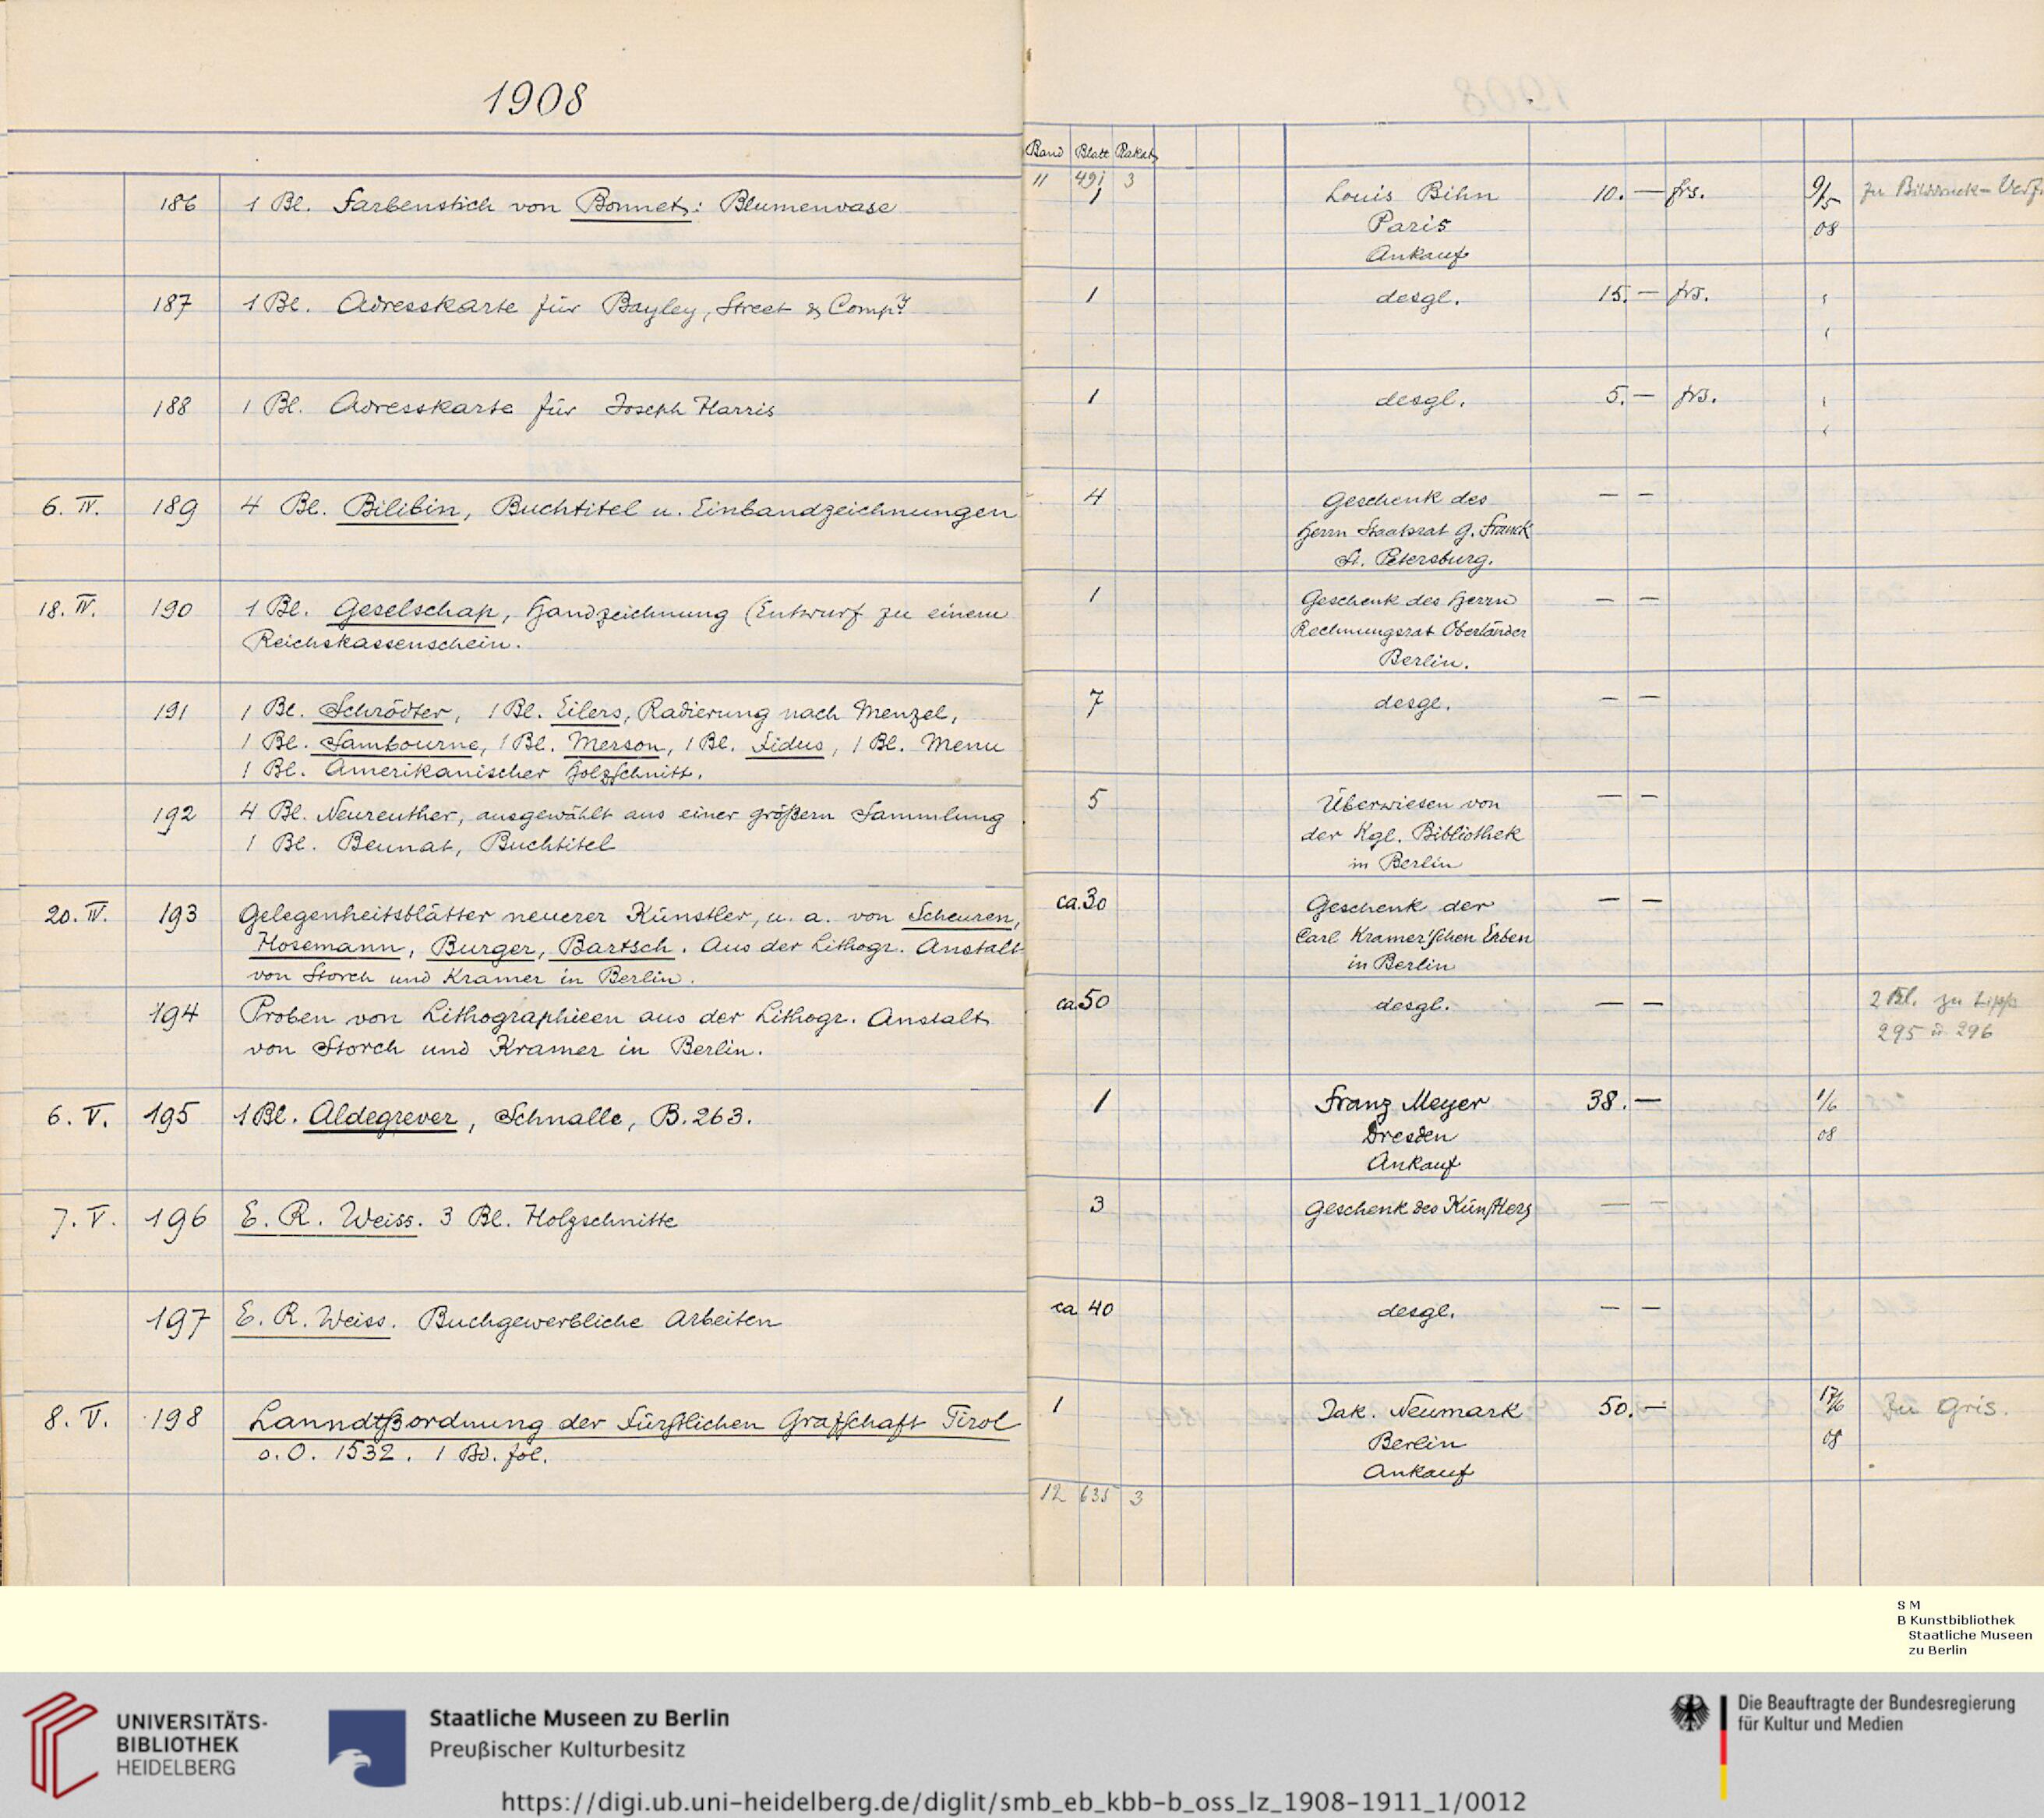 1908
Band Blatt Paket
11 491 3
186 1 Bl. Farbenstich von Bonnet: Blumenvase 1 Louis Bihn 10.— frs. 9/5 zu Bilddruck-Verf.
Paris 08
Ankauf
187 1 Bl. Adresskarte für Bayley, Street & Compy 1 desgl. 15.— frs.
188 1 Bl. Adresskarte für Joseph Harris 1 desgl. 5.— frs.
6. IV. 189 4 Bl. Bilibin, Buchtitel u. Einbandzeichnungen 4 Geschenk des — —
Herrn Staatsrat G. Franck
St. Petersburg.
18. IV. 190 1 Bl. Geselschap, Handzeichnung (Entwurf zu einem 1 Geschenk des Herrn — —
Reichskassenschein. Rechnungsrat Oberländer
Berlin.
191 1 Bl. Schrödter, 1 Bl. Eilers, Radierung nach Menzel, 7 desgl. — —
1 Bl. Sambourne, 1 Bl. Merson, 1 Bl. Fidus, 1 Bl. Menu
1 Bl. Amerikanischer Holzschnitt.
192 4 Bl. Neureuther, ausgewählt aus einer größern Sammlung 5 Überwiesen von — —
1 Bl. Beunat, Buchtitel der Kgl. Bibliothek
in Berlin
20. IV. 193 Gelegenheitsblätter neuerer Künstler, u. a. von Scheuren, ca. 30 Geschenk der — —
Hosemann, Burger, Bartsch. Aus der Lithogr. Anstalt Carl Kramer'schen Erben
von Storch und Kramer in Berlin. in Berlin
194 Proben von Lithographieen aus der Lithogr. Anstalt ca. 50 desgl. — — 2 Bl. zu Lipp
von Storch und Kramer in Berlin. 295 u. 296
6. V. 195 1 Bl. Aldegrever, Schnalle, B. 263. 1 Franz Meyer 38.— 1/6
Dresden 08
Ankauf
7. V. 196 E. R. Weiss. 3 Bl. Holzschnitte 3 Geschenk des Künstlers — —
197 E. R. Weiss. Buchgewerbliche Arbeiten ca 40 desgl. — —
8. V. 198 Lanndtßordnung der Fürstlichen Grafschaft Tirol 1 Jak. Neumark 50.— 17/6 Zu Gris.
o. O. 1532. 1 Bd. fol. Berlin 08
Ankauf
12 635 3
S M
B Kunstbibliothek
Staatliche Museen
zu Berlin
UNIVERSITÄTS-
BIBLIOTHEK
HEIDELBERG
Staatliche Museen zu Berlin
Preußischer Kulturbesitz
Die Beauftragte der Bundesregierung
für Kultur und Medien
https://digi.ub.uni-heidelberg.de/diglit/smb_eb_kbb-b_oss_lz_1908-1911_1/0012